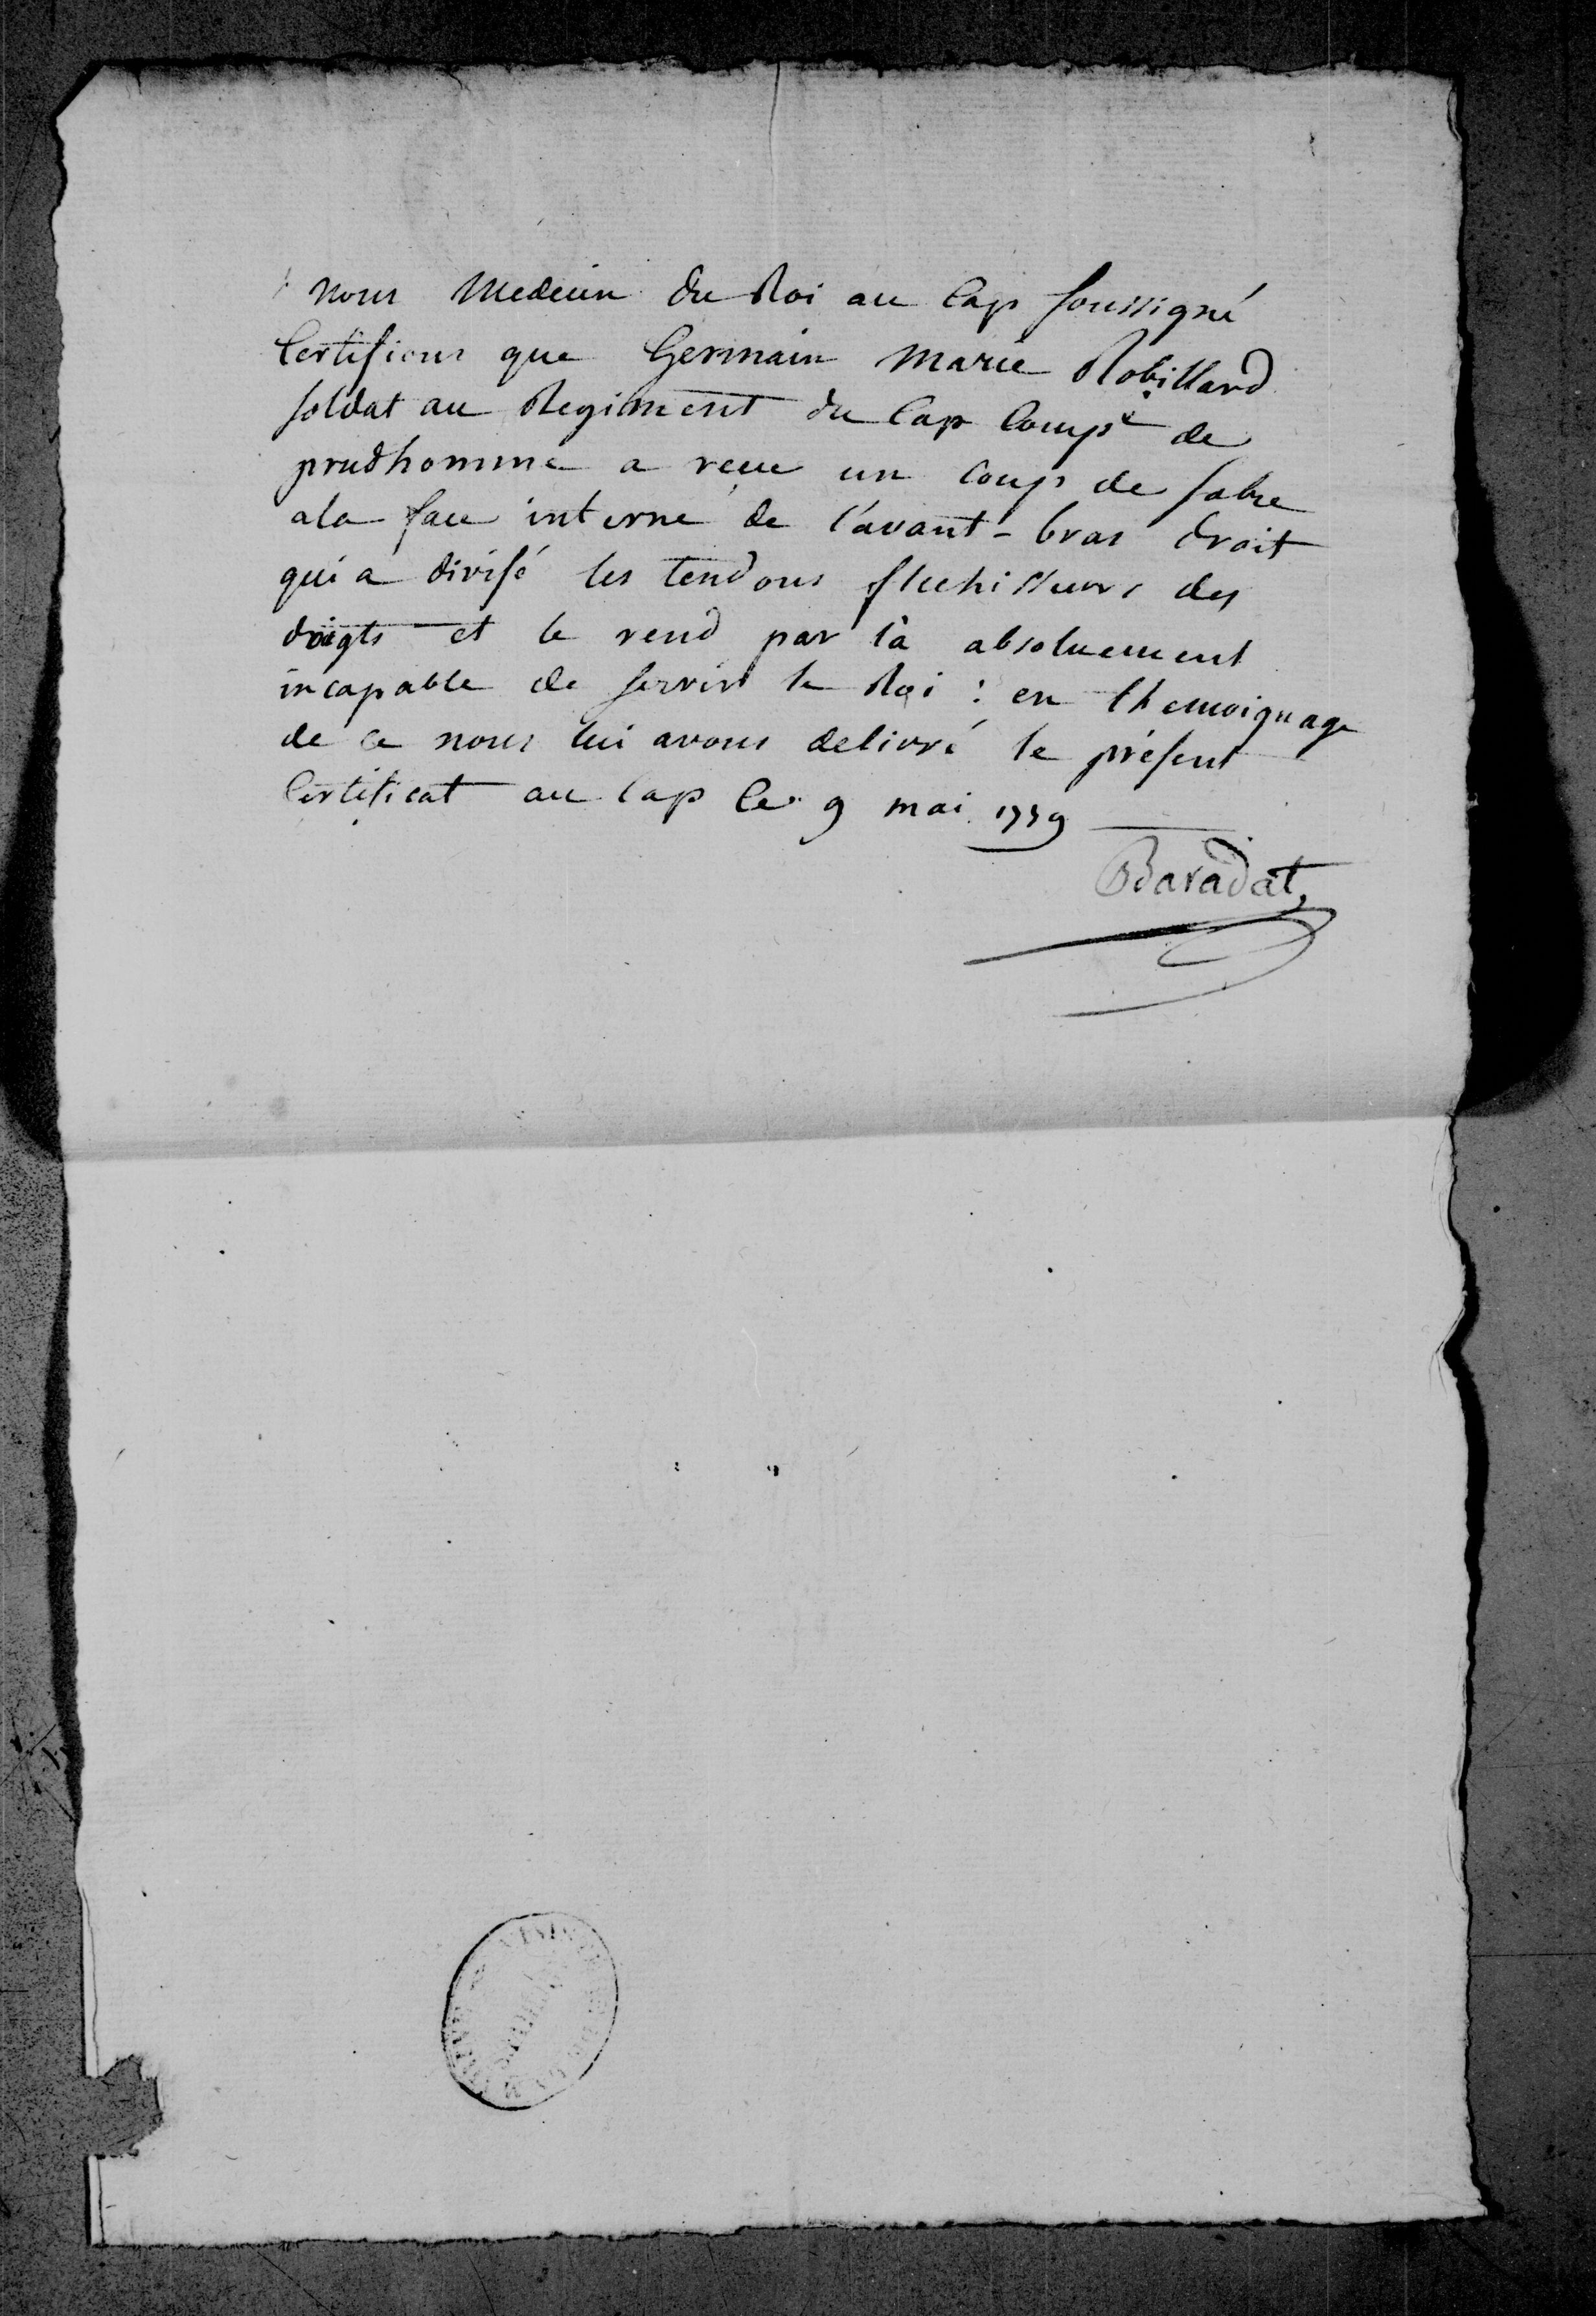 nous Medecin du Roi au Cap soussigné
Certifions que Germain Marie Robillard
soldat au Regiment du Cap Comp.e de
prudhomme a reçue un coup de sabre
ala face interne de l'avant-bras droit
qui a divisé les tendons flechisseurs des
doigts et le rend par là absoluement
incapable de servir le Roi : en themoignage
de ce nous lui avons delivré le présent
Certificat au Cap le 9 mai 1779
Baradat